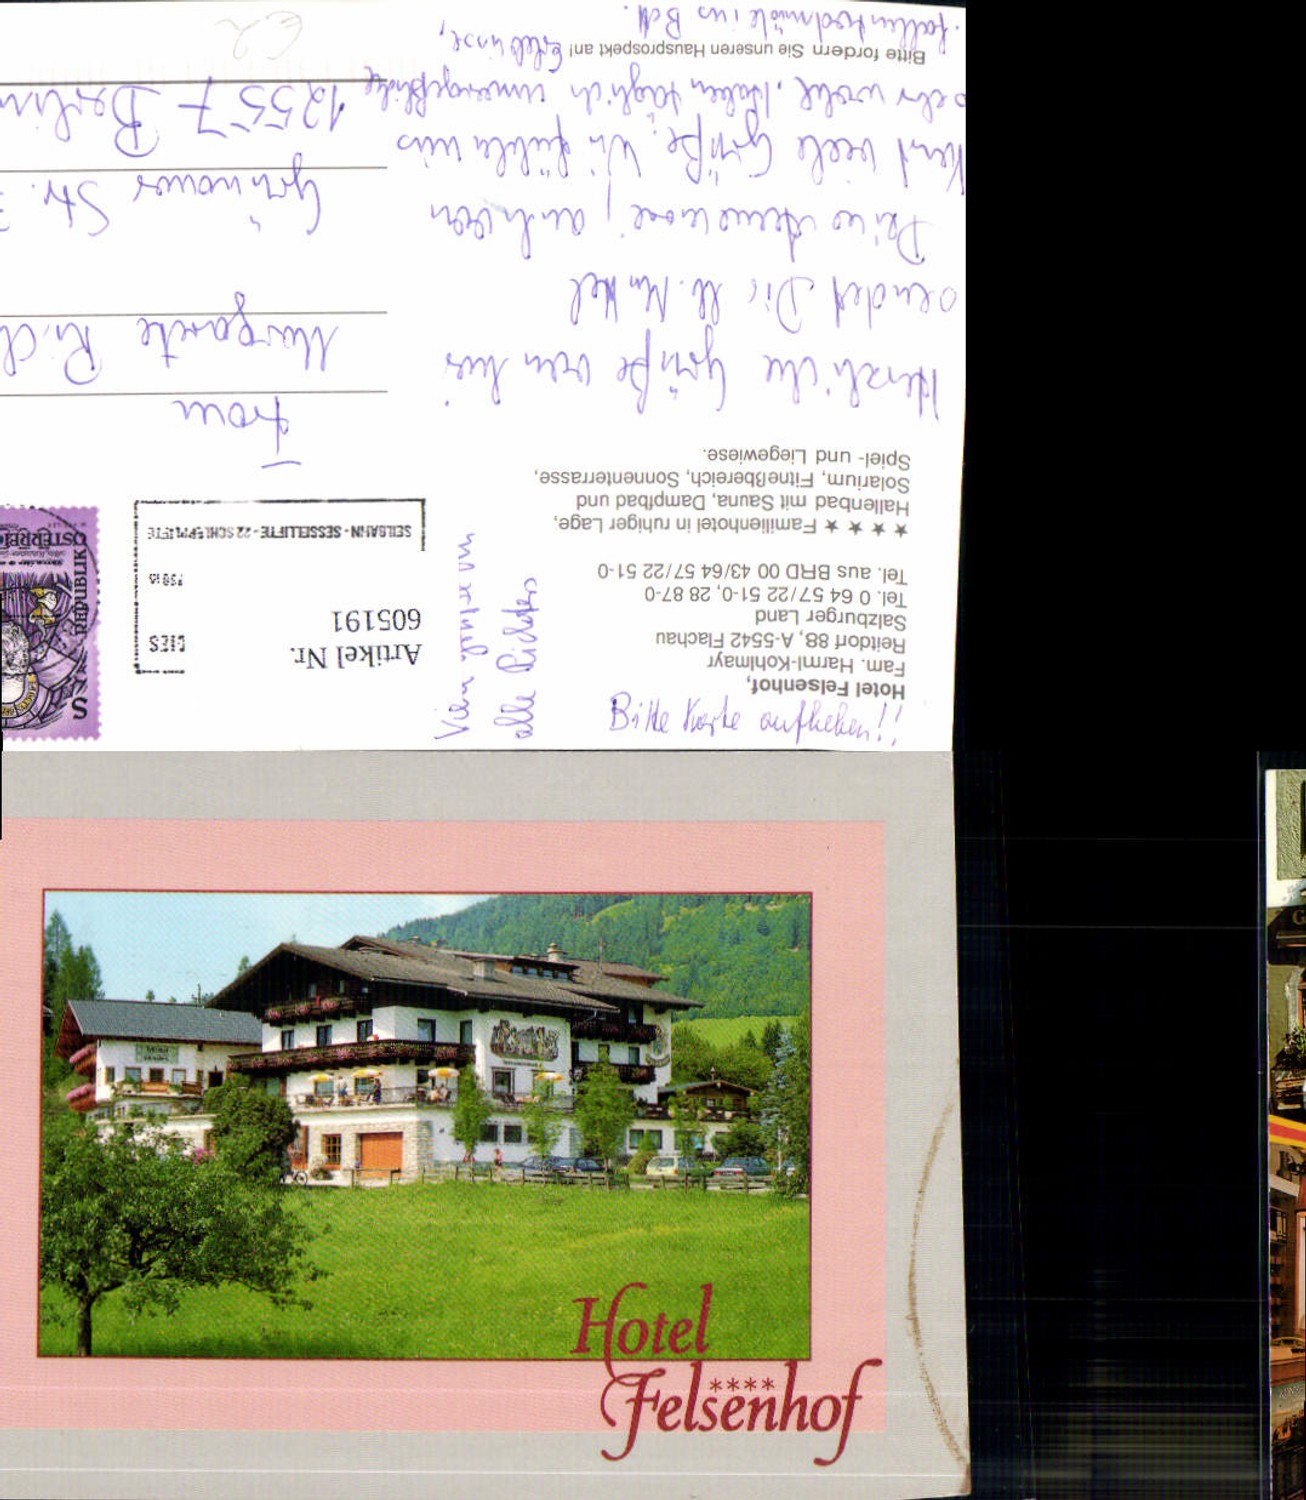 Bitte Karte aufheben!!
Hotel Felsenhof,
Fam. Harml-Kohlmayr
Reitdorf 88, A-5542 Flachau
Salzburger Land
Tel. 0 64 57/22 51-0, 28 87-0
Tel. aus BRD 00 43/64 57/22 51-0
★ ★ ★ ★ Familienhotel in ruhiger Lage,
Hallenbad mit Sauna, Dampfbad und
Solarium, Fitneßbereich, Sonnenterrasse,
Spiel- und Liegewiese.
Herzliche Grüße von hier
sendet Dir
auch von
viele Grüße. Wir fühlen uns
sehr wohl. Haben täglich unvergeßliche
Erlebnisse,
fallen todmüde ins Bett.
Bitte fordern Sie unseren Hausprospekt an!
alle Richters
Artikel Nr.
605191
SEILBAHN - SESSELLIFTE - 22 SCHLEPPLIFTE
S
REPUBLIK
ÖSTERREI
Frau
Margarete Rich
Grünauer Str. 3
12557 Berlin
Hotel
Felsenhof
****